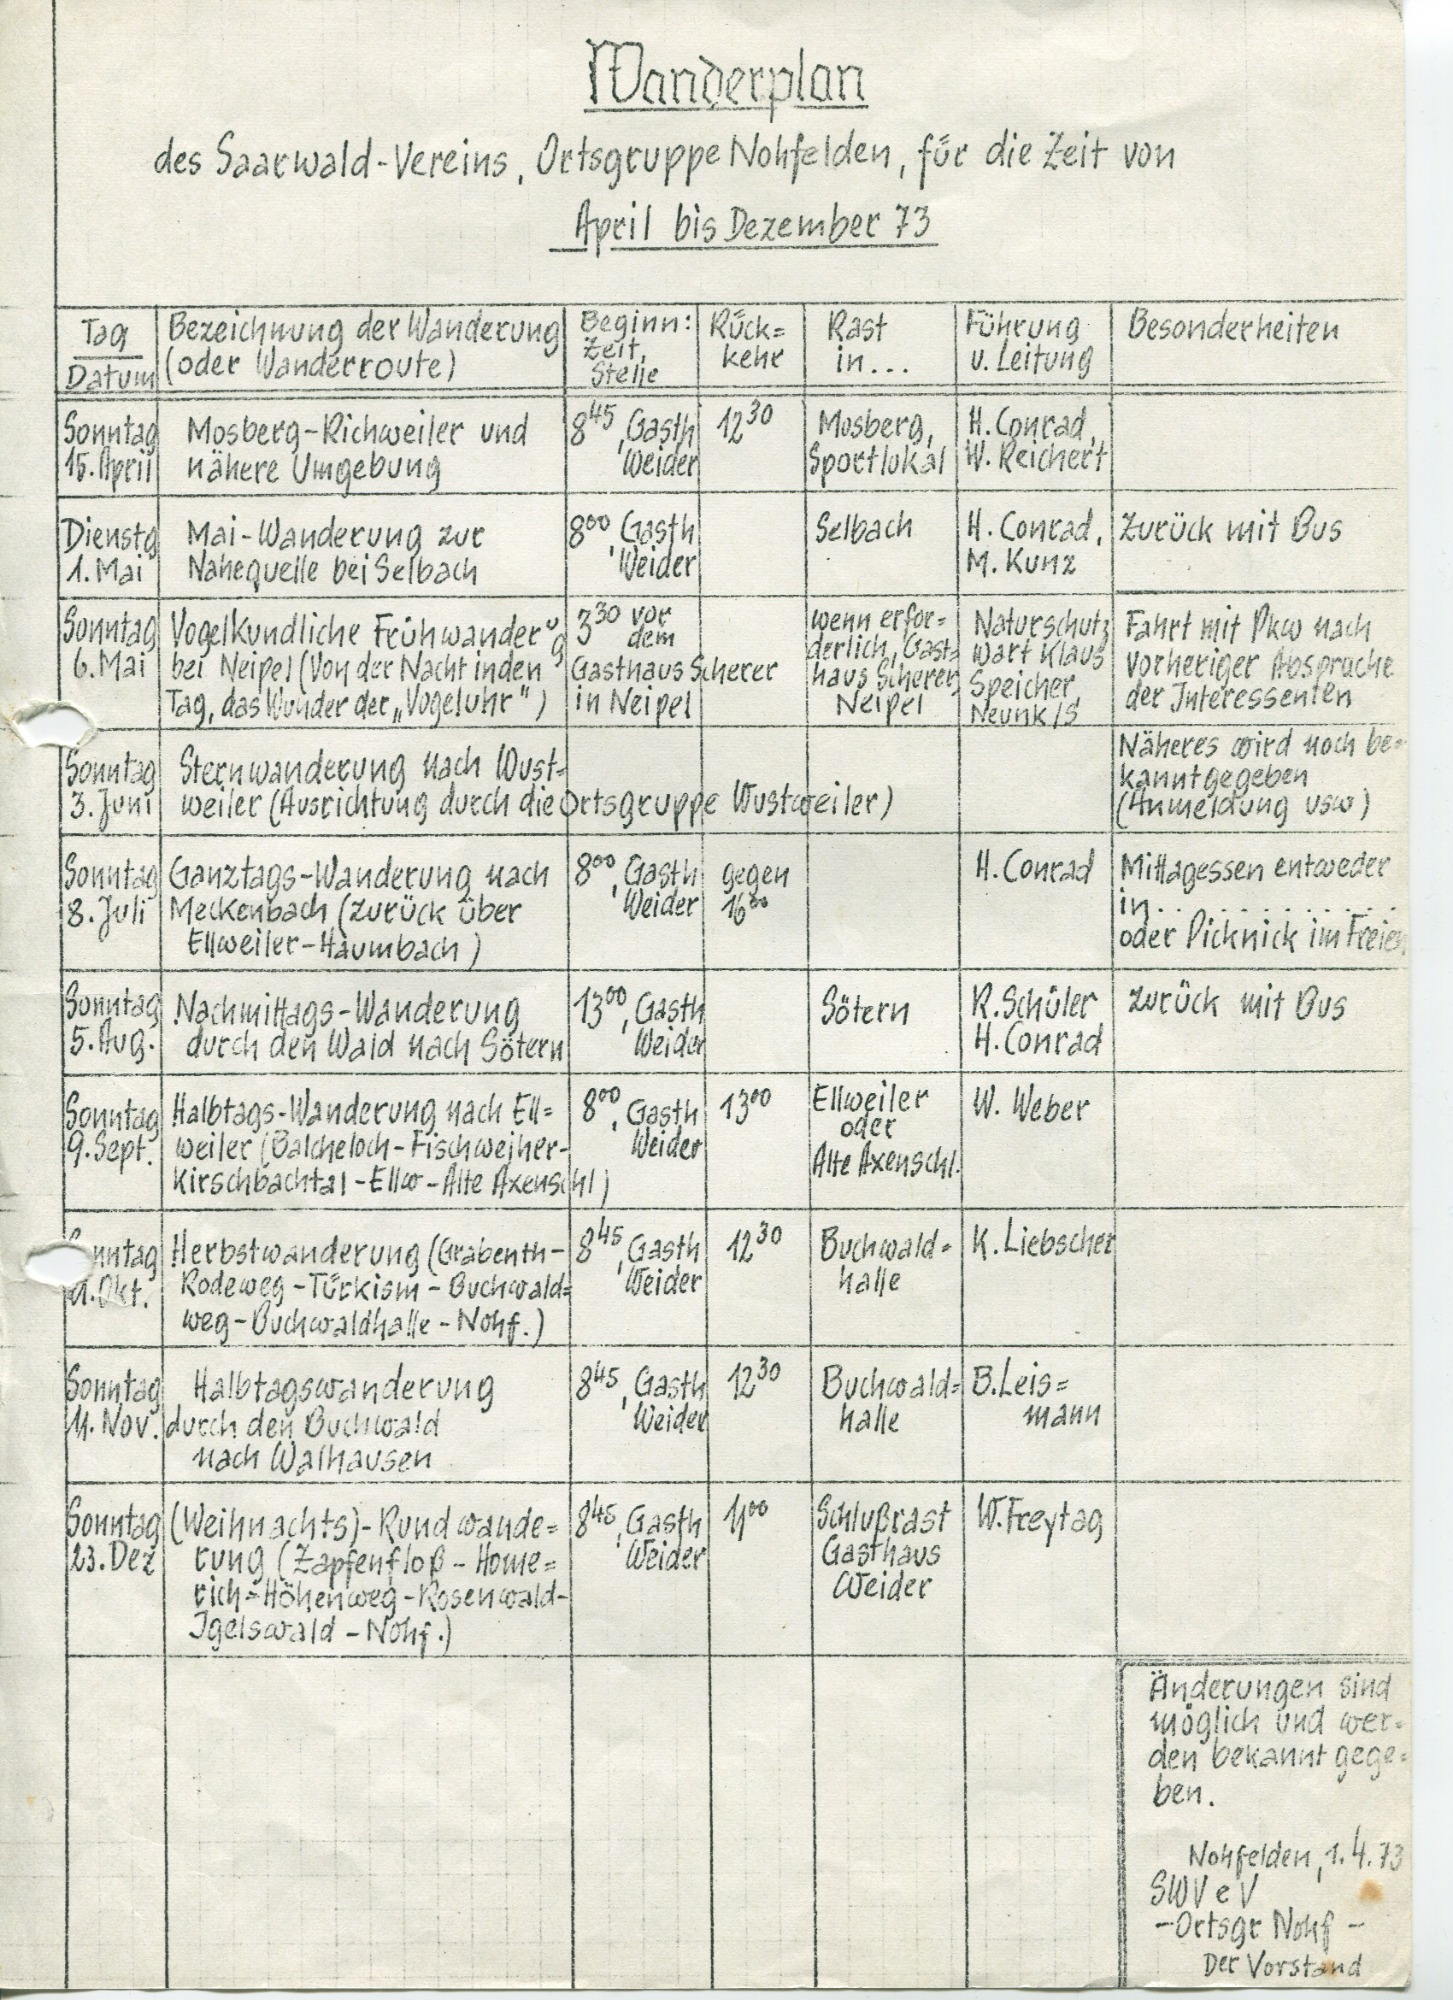 Wanderplan
des Saarwald-Vereins, Ortsgruppe Nohfelden, für die Zeit von
April bis Dezember 73
Tag
Datum
Bezeichnung der Wanderung
(oder Wanderroute)
Beginn:
Zeit,
Stelle
Rück=
kehr
Rast
in...
Führung
u. Leitung
Besonderheiten
Sonntag
15. April
Mosberg-Richweiler und
nähere Umgebung
8⁴⁵, Gasth
Weider
12³⁰
Mosberg,
Sportlokal
H. Conrad,
W. Reichert
Dienstg
1. Mai
Mai-Wanderung zur
Nahequelle bei Selbach
8⁰⁰, Gasth
Weider
Selbach
H. Conrad,
M. Kunz
Zurück mit Bus
Sonntag
6. Mai
Vogelkundliche Frühwander'g
bei Neipel (Von der Nacht in den
Tag, das Wunder der „Vogeluhr")
3³⁰ vor
dem
Gasthaus Scherer
in Neipel
wenn erfor=
derlich, Gast=
haus Scherer,
Neipel
Naturschutz
wart Klaus
Speicher,
Neunk/S
Fahrt mit Pkw nach
vorheriger Absprache
der Interessenten
Sonntag
3. Juni
Sternwanderung nach Wust=
weiler (Ausrichtung durch die Ortsgruppe Wustweiler)
Näheres wird noch be=
kanntgegeben
(Anmeldung usw)
Sonntag
8. Juli
Ganztags-Wanderung nach
Meckenbach (zurück über
Ellweiler-Haumbach)
8⁰⁰, Gasth
Weider
gegen
16⁰⁰
H. Conrad
Mittagessen entweder
in. . . . . . . . . . . .
oder Picknick im Freien
Sonntag
5. Aug.
Nachmittags-Wanderung
durch den Wald nach Sötern
13⁰⁰, Gasth
Weider
Sötern
R. Schüler
H. Conrad
zurück mit Bus
Sonntag
9. Sept.
Halbtags-Wanderung nach Ell=
weiler (Balcheloch-Fischweiher-
Kirschbachtal-Ellw-Alte Axenschl)
8⁰⁰, Gasth
Weider
13⁰⁰
Ellweiler
oder
Alte Axenschl.
W. Weber
nntag
Okt.
Herbstwanderung (Grabenth-
Rodeweg-Türkism-Buchwald=
weg-Buchwaldhalle-Nohf.)
8⁴⁵, Gasth
Weider
12³⁰
Buchwald=
halle
K. Liebscher
Sonntag
11. Nov.
Halbtagswanderung
durch den Buchwald
nach Walhausen
8⁴⁵, Gasth
Weider
12³⁰
Buchwald=
halle
B. Leis=
mann
Sonntag
23. Dez
(Weihnachts)-Rundwande=
rung (Zapfenfloß-Home=
rich-Höhenweg-Rosenwald-
Igelswald-Nohf.)
8⁴⁵, Gasth
Weider
11⁰⁰
Schlußrast
Gasthaus
Weider
W. Freytag
Änderungen sind
möglich und wer=
den bekannt gege=
ben.
Nohfelden, 1.4.73
SWV e V
-Ortsgr Nohf-
Der Vorstand